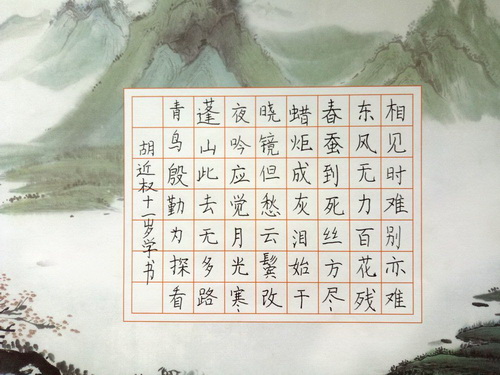 相见时难别亦难
东风无力百花残
春蚕到死丝方尽
蜡炬成灰泪始干
晓镜但愁云鬓改
夜吟应觉月光寒
蓬山此去无多路
青鸟殷勤为探看
胡近权十一岁学书